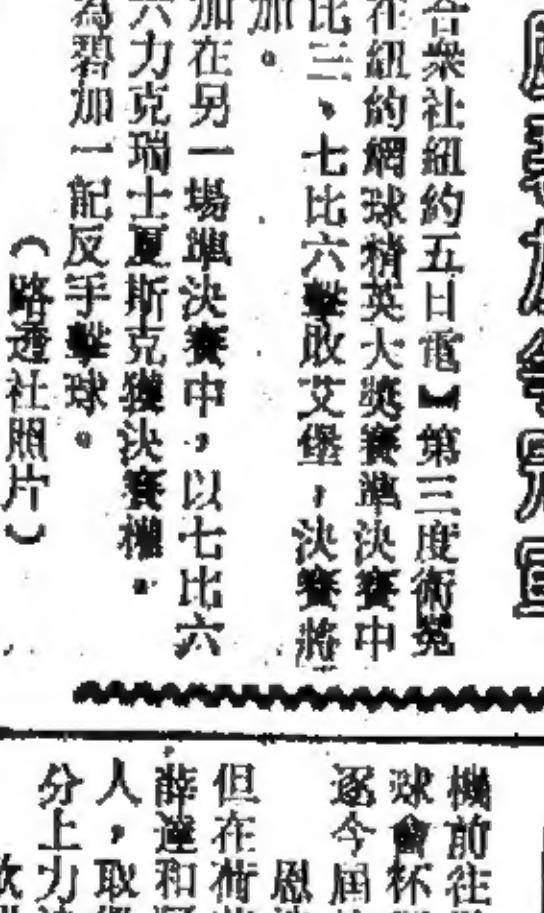 合衆社紐約五日電】第三度衛冕
在紐約網球精英大奬賽準決賽中
比三、七比六擊敗艾堡，決賽將
加。
加在另一場準決賽中，以七比六
六力克瑞士夏斯克獲決賽權。
為碧加一記反手擊球。
（路透社照片）
機前往
球會杯
逐今屆
恩
但在荷
薛達和
人，取
分上力